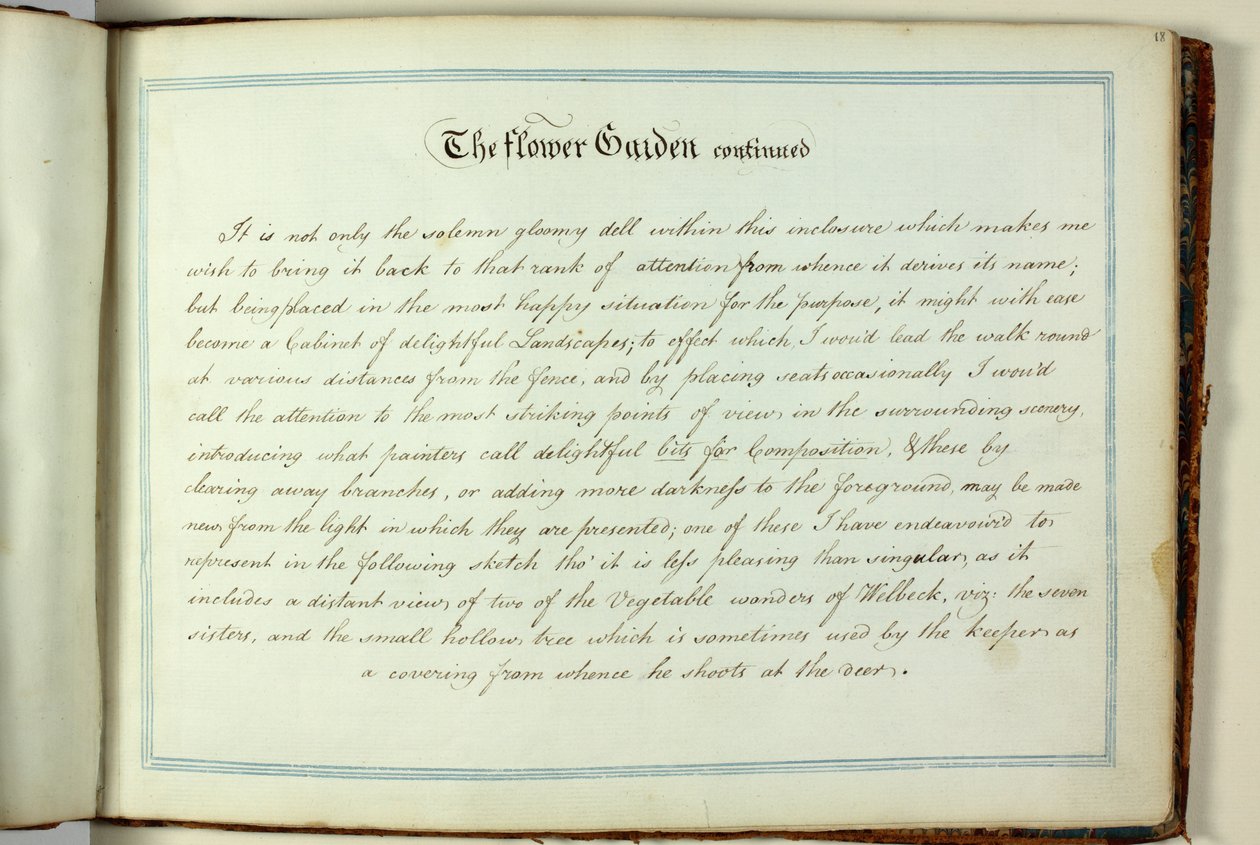 18
The Flower Garden continued
It is not only the solemn gloomy dell within this inclosure which makes me
wish to bring it back to that rank of attention from whence it derives its name;
but being placed in the most happy situation for the purpose, it might with ease
become a Cabinet of delightful Landscapes; to effect which, I wou'd lead the walk round
at various distances from the fence, and by placing seats occasionally I wou'd
call the attention to the most striking points of view in the surrounding scenery,
introducing what painters call delightful bits for Composition, & these by
clearing away branches, or adding more darkness to the foreground, may be made
new from the light in which they are presented; one of these I have endeavour'd to
represent in the following sketch tho' it is less pleasing than singular, as it
includes a distant view of two of the Vegetable wonders of Welbeck, viz: the seven
sisters, and the small hollow tree which is sometimes used by the keeper as
a covering from whence he shoots at the deer.